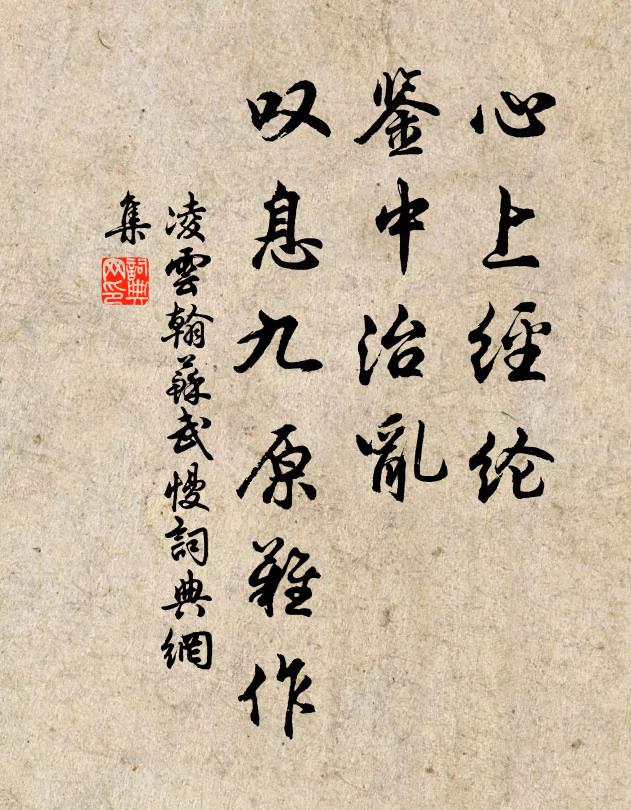 心上經纶
鉴中治亂
叹息九原難作
凌雲翰蘇武慢詞典網
集
詞典
网印